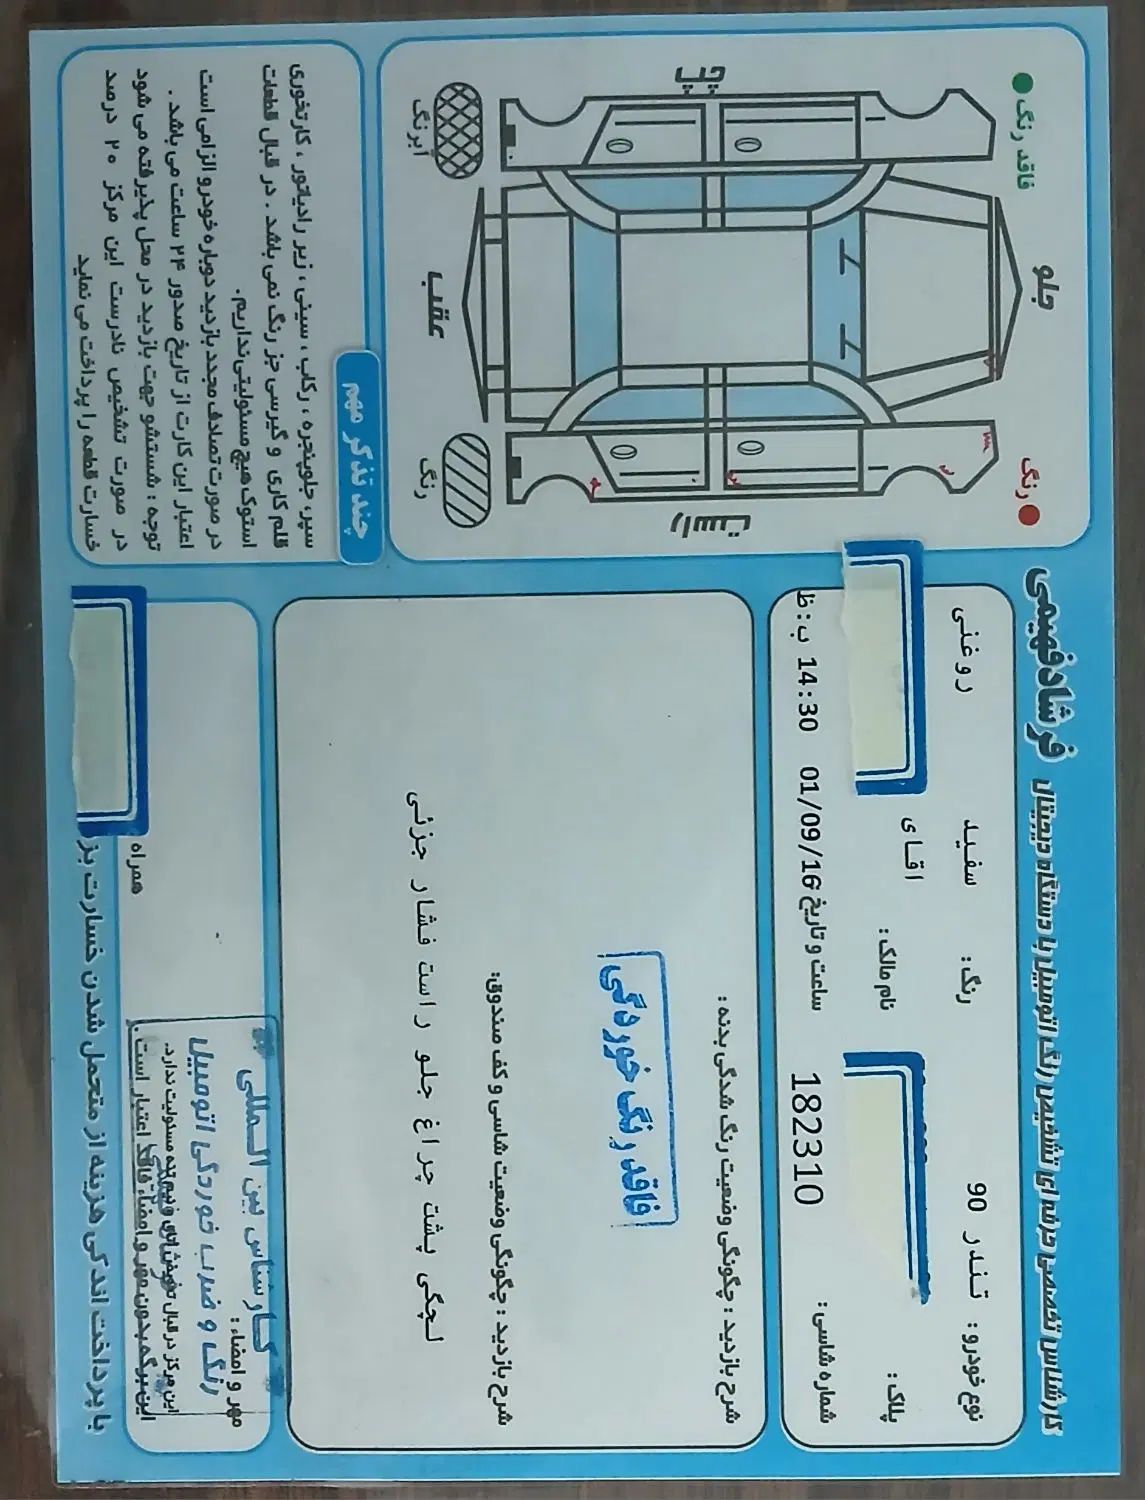 کارشناس تخصصی حرفه ای تشخیص رنگ اتومبیل با دستگاه دیجیتال فرشاد فهیمی
نوع خودرو : تندر 90 رنگ : سفید روغنی
پلاک : نام مالک : اقای
شماره شاسی : 182310 ساعت و تاریخ 01/09/16 14:30 ب : ظ
شرح بازدید : چگونگی وضعیت رنگ شدگی بدنه :
فاقد رنگ خوردگی
شرح بازدید : چگونگی وضعیت شاسی و کف صندوق:
لچکی پشت چراغ جلو راست فشار جزئی
مهر و امضاء :
کارشناس بین المللی
رنگ و ضرب خوردگی اتومبیل
این مرکز در قبال تعویض اتاق و نیم تنه مسئولیت ندارد.
این برگه بدون مهر و امضاء فاقد اعتبار است.
همراه
با پرداخت اندکی هزینه از متحمل شدن خسارت
فاقد رنگ
جلو
رنگ
چپ
راست
عقب
ابرنگ
رنگ
چند تذکر مهم
سپر، جلوپنجره ، رکاب ، سینی ، زیر رادیاتور ، کارتخوری
قلم کاری و گیرسی جز رنگ نمی باشد . در قبال قطعات
استوک هیچ مسئولیتی نداریم.
در صورت تصادف مجدد بازدید دوباره خودرو الزامی است
اعتبار این کارت از تاریخ صدور ۲۴ ساعت می باشد .
توجه : شستشو جهت بازدید در محل پذیرفته می شود
در صورت تشخیص نادرست این مرکز ۲۰ درصد
خسارت قطعه را پرداخت می نماید